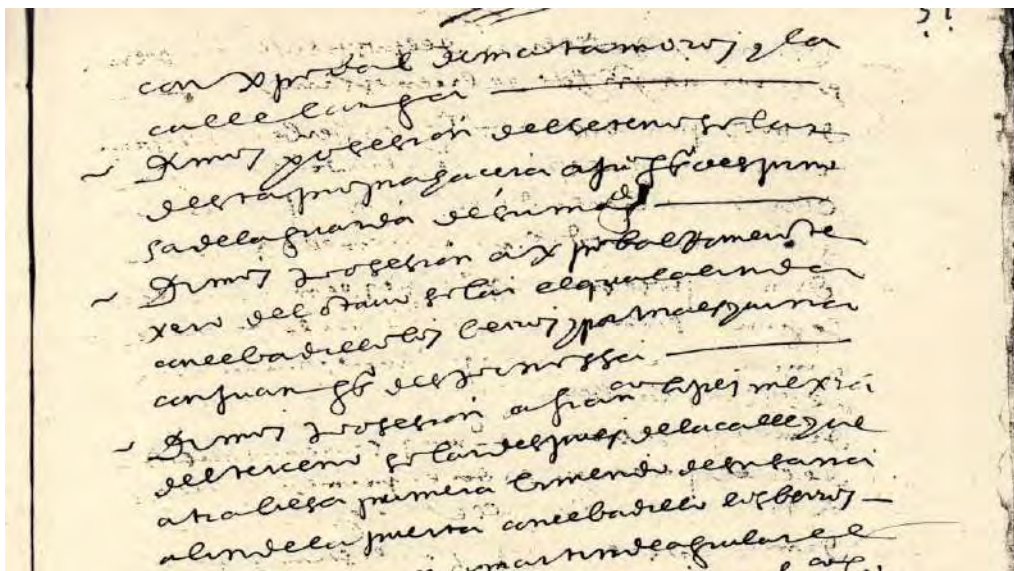 con xpobal de matamoros y la
calle larga
Dimos posesion del seteno solar
desta propia hacera a ju° gs de espino
sa de la guarda de su magd
Dimos posesion a xpobal Ximenez te
xero del otavo solar el qual alinda
con el badillo los berros y por una esquina
con Juan gs de espinossa
Dimos posesion a fran co lopez mexia
del terceno solar despues de la calle que
atrabiesa primera biniendo de susana
alinde la puerta con el badillo los berros
martin de aguilar el